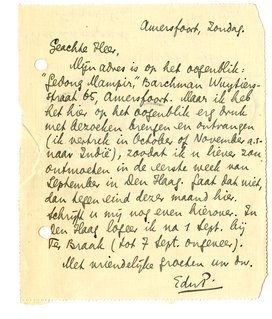 Amersfoort, Zondag.
Geachte Heer,
Mijn adres is op het oogenblik:
"Gedong Mampir", Barchman Wuytiers-
straat 65, Amersfoort. Maar ik heb
het hier op het oogenblik erg druk
met bezoeken brengen en ontvangen
(ik vertrek in October of November a.s.
naar Indië), zoodat ik u liever zou
ontmoeten in de eerste week van
September in Den Haag. Gaat dat niet,
dan tegen eind dezer maand hier.
Schrijft u mij nog even hierover. In
Den Haag logeer ik na 1 Sept. bij
Ter Braak (tot 7 Sept. ongeveer).
Met vriendelijke groeten uw dw.
EduP.